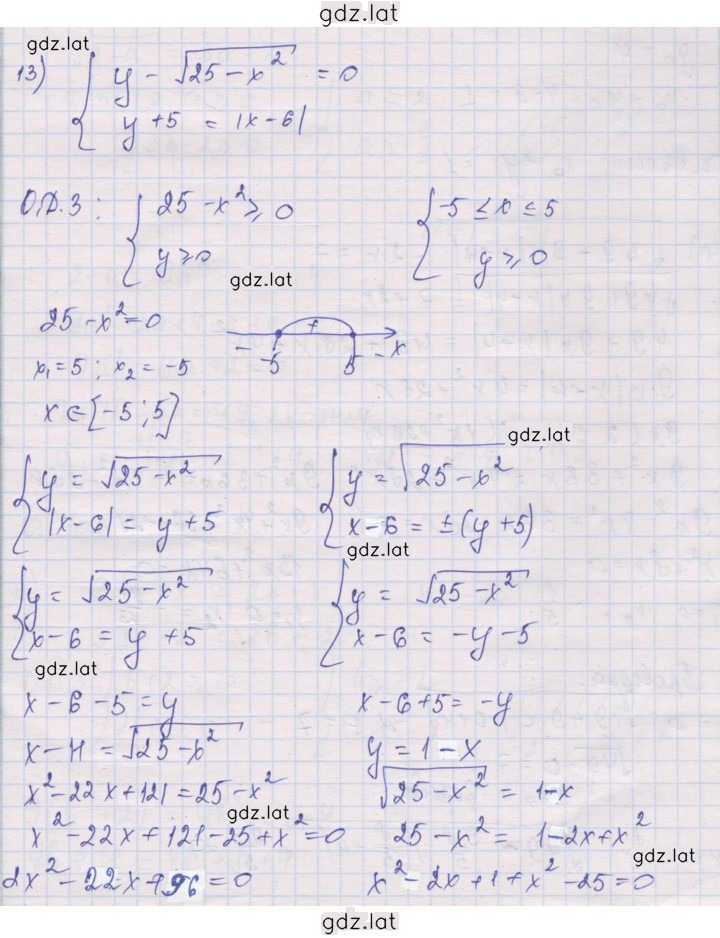 gdz.lat
gdz.lat
13) { y - √25 - x² = 0
y + 5 = |x - 6|
О.Д.З: { 25 - x² ≥ 0 { -5 ≤ x ≤ 5
y ≥ 0 y ≥ 0
gdz.lat
25 - x² = 0
- -5 + 5 - x
x₁ = 5; x₂ = -5
x ∈ [-5; 5]
gdz.lat
{ y = √25 - x² { y = √25 - x²
|x - 6| = y + 5 x - 6 = ±(y + 5)
gdz.lat
{ y = √25 - x² { y = √25 - x²
x - 6 = y + 5 x - 6 = -y - 5
gdz.lat
x - 6 - 5 = y x - 6 + 5 = -y
x - 11 = √25 - x² y = 1 - x
x² - 22x + 121 = 25 - x² √25 - x² = 1 - x
gdz.lat
x² - 22x + 121 - 25 + x² = 0 25 - x² = 1 - 2x + x²
gdz.lat
2x² - 22x + 96 = 0 x² - 2x + 1 + x² - 25 = 0
gdz.lat